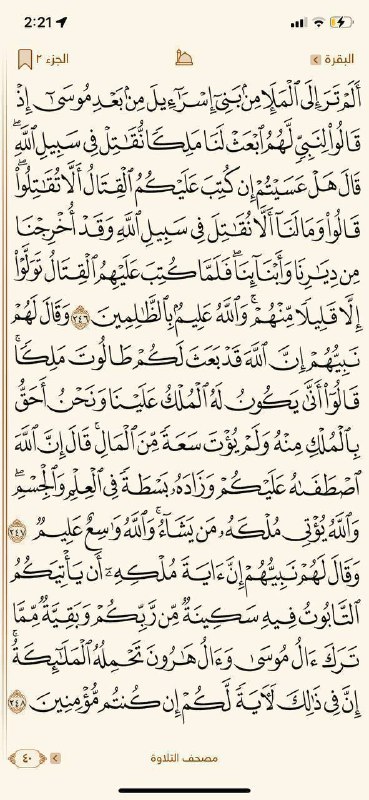 2:21
البقرة
الجزء ٢
أَلَمْ تَرَ إِلَى ٱلْمَلَإِ مِنۢ بَنِىٓ إِسْرَٰٓءِيلَ مِنۢ بَعْدِ مُوسَىٰٓ إِذْ
قَالُوا۟ لِنَبِىٍّ لَّهُمُ ٱبْعَثْ لَنَا مَلِكًا نُّقَٰتِلْ فِى سَبِيلِ ٱللَّهِ ۖ
قَالَ هَلْ عَسَيْتُمْ إِن كُتِبَ عَلَيْكُمُ ٱلْقِتَالُ أَلَّا تُقَٰتِلُوا۟ ۖ
قَالُوا۟ وَمَا لَنَآ أَلَّا نُقَٰتِلَ فِى سَبِيلِ ٱللَّهِ وَقَدْ أُخْرِجْنَا
مِن دِيَٰرِنَا وَأَبْنَآئِنَا ۖ فَلَمَّا كُتِبَ عَلَيْهِمُ ٱلْقِتَالُ تَوَلَّوْا۟
إِلَّا قَلِيلًا مِّنْهُمْ ۗ وَٱللَّهُ عَلِيمٌۢ بِٱلظَّٰلِمِينَ ٢٤٦ وَقَالَ لَهُمْ
نَبِيُّهُمْ إِنَّ ٱللَّهَ قَدْ بَعَثَ لَكُمْ طَالُوتَ مَلِكًا ۚ
قَالُوٓا۟ أَنَّىٰ يَكُونُ لَهُ ٱلْمُلْكُ عَلَيْنَا وَنَحْنُ أَحَقُّ
بِٱلْمُلْكِ مِنْهُ وَلَمْ يُؤْتَ سَعَةً مِّنَ ٱلْمَالِ ۚ قَالَ إِنَّ ٱللَّهَ
ٱصْطَفَىٰهُ عَلَيْكُمْ وَزَادَهُۥ بَسْطَةً فِى ٱلْعِلْمِ وَٱلْجِسْمِ ۖ
وَٱللَّهُ يُؤْتِى مُلْكَهُۥ مَن يَشَآءُ ۚ وَٱللَّهُ وَٰسِعٌ عَلِيمٌ ٢٤٧
وَقَالَ لَهُمْ نَبِيُّهُمْ إِنَّ ءَايَةَ مُلْكِهِۦٓ أَن يَأْتِيَكُمُ
ٱلتَّابُوتُ فِيهِ سَكِينَةٌ مِّن رَّبِّكُمْ وَبَقِيَّةٌ مِّمَّا
تَرَكَ ءَالُ مُوسَىٰ وَءَالُ هَٰرُونَ تَحْمِلُهُ ٱلْمَلَٰٓئِكَةُ ۚ
إِنَّ فِى ذَٰلِكَ لَءَايَةً لَّكُمْ إِن كُنتُم مُّؤْمِنِينَ ٢٤٨
مصحف التلاوة
٤٠